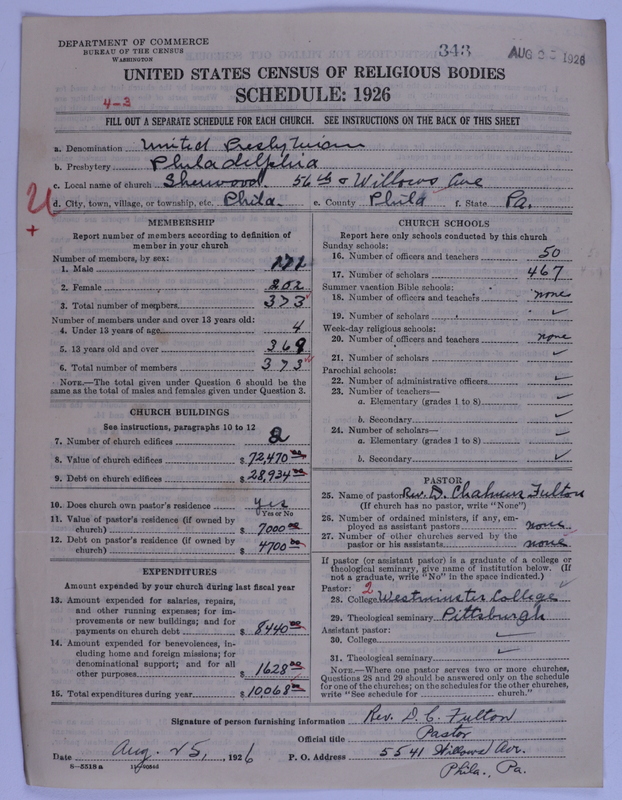 DEPARTMENT OF COMMERCE
BUREAU OF THE CENSUS
WASHINGTON
343
AUG 25 1926
UNITED STATES CENSUS OF RELIGIOUS BODIES
SCHEDULE: 1926
4-3
FILL OUT A SEPARATE SCHEDULE FOR EACH CHURCH. SEE INSTRUCTIONS ON THE BACK OF THIS SHEET
a. Denomination United Presbyterian
b. Presbytery Philadelphia
c. Local name of church Sherwood. 56th & Willows Ave
d. City, town, village, or township, etc. Phila. e. County Phila f. State Pa.
U
+
MEMBERSHIP
Report number of members according to definition of
member in your church
Number of members, by sex:
1. Male 171
2. Female 202
3. Total number of members 373
Number of members under and over 13 years old:
4. Under 13 years of age 4
5. 13 years old and over 369
6. Total number of members 373
NOTE.—The total given under Question 6 should be the
same as the total of males and females given under Question 3.
CHURCH BUILDINGS
See instructions, paragraphs 10 to 12
7. Number of church edifices 2
8. Value of church edifices $ 72,470.00
9. Debt on church edifices $ 28,934.00
10. Does church own pastor's residence yes
Yes or No
11. Value of pastor's residence (if owned by
church) $ 7000.00
12. Debt on pastor's residence (if owned by
church) $ 4700.00
EXPENDITURES
Amount expended by your church during last fiscal year
13. Amount expended for salaries, repairs,
and other running expenses; for im-
provements or new buildings; and for
payments on church debt $ 8440.00
14. Amount expended for benevolences, in-
cluding home and foreign missions; for
denominational support; and for all
other purposes $ 1628.00
15. Total expenditures during year $ 10,068.00
CHURCH SCHOOLS
Report here only schools conducted by this church
Sunday schools:
16. Number of officers and teachers 50
17. Number of scholars 467
Summer vacation Bible schools:
18. Number of officers and teachers none
19. Number of scholars ✓
Week-day religious schools:
20. Number of officers and teachers none
21. Number of scholars ✓
Parochial schools:
22. Number of administrative officers ✓
23. Number of teachers—
a. Elementary (grades 1 to 8) ✓
b. Secondary ✓
24. Number of scholars—
a. Elementary (grades 1 to 8) ✓
b. Secondary ✓
PASTOR
25. Name of pastor Rev. D. Chalmers Fulton
(If church has no pastor, write "None")
26. Number of ordained ministers, if any, em-
ployed as assistant pastors none
27. Number of other churches served by the
pastor or his assistants none
If pastor (or assistant pastor) is a graduate of a college or
theological seminary, give name of institution below. (If
not a graduate, write "No" in the space indicated.)
Pastor: 2
28. College Westminster College
29. Theological seminary Pittsburgh
Assistant pastor:
30. College ✓
31. Theological seminary ✓
NOTE.—Where one pastor serves two or more churches,
Questions 28 and 29 should be answered only on the schedule
for one of the churches; on the schedules for the other churches,
write "See schedule for church."
Signature of person furnishing information Rev. D. C. Fulton
Official title Pastor
Date Aug. 25, 1926 P. O. Address 5541 Willows Ave.
Phila., Pa.
8—5518 a